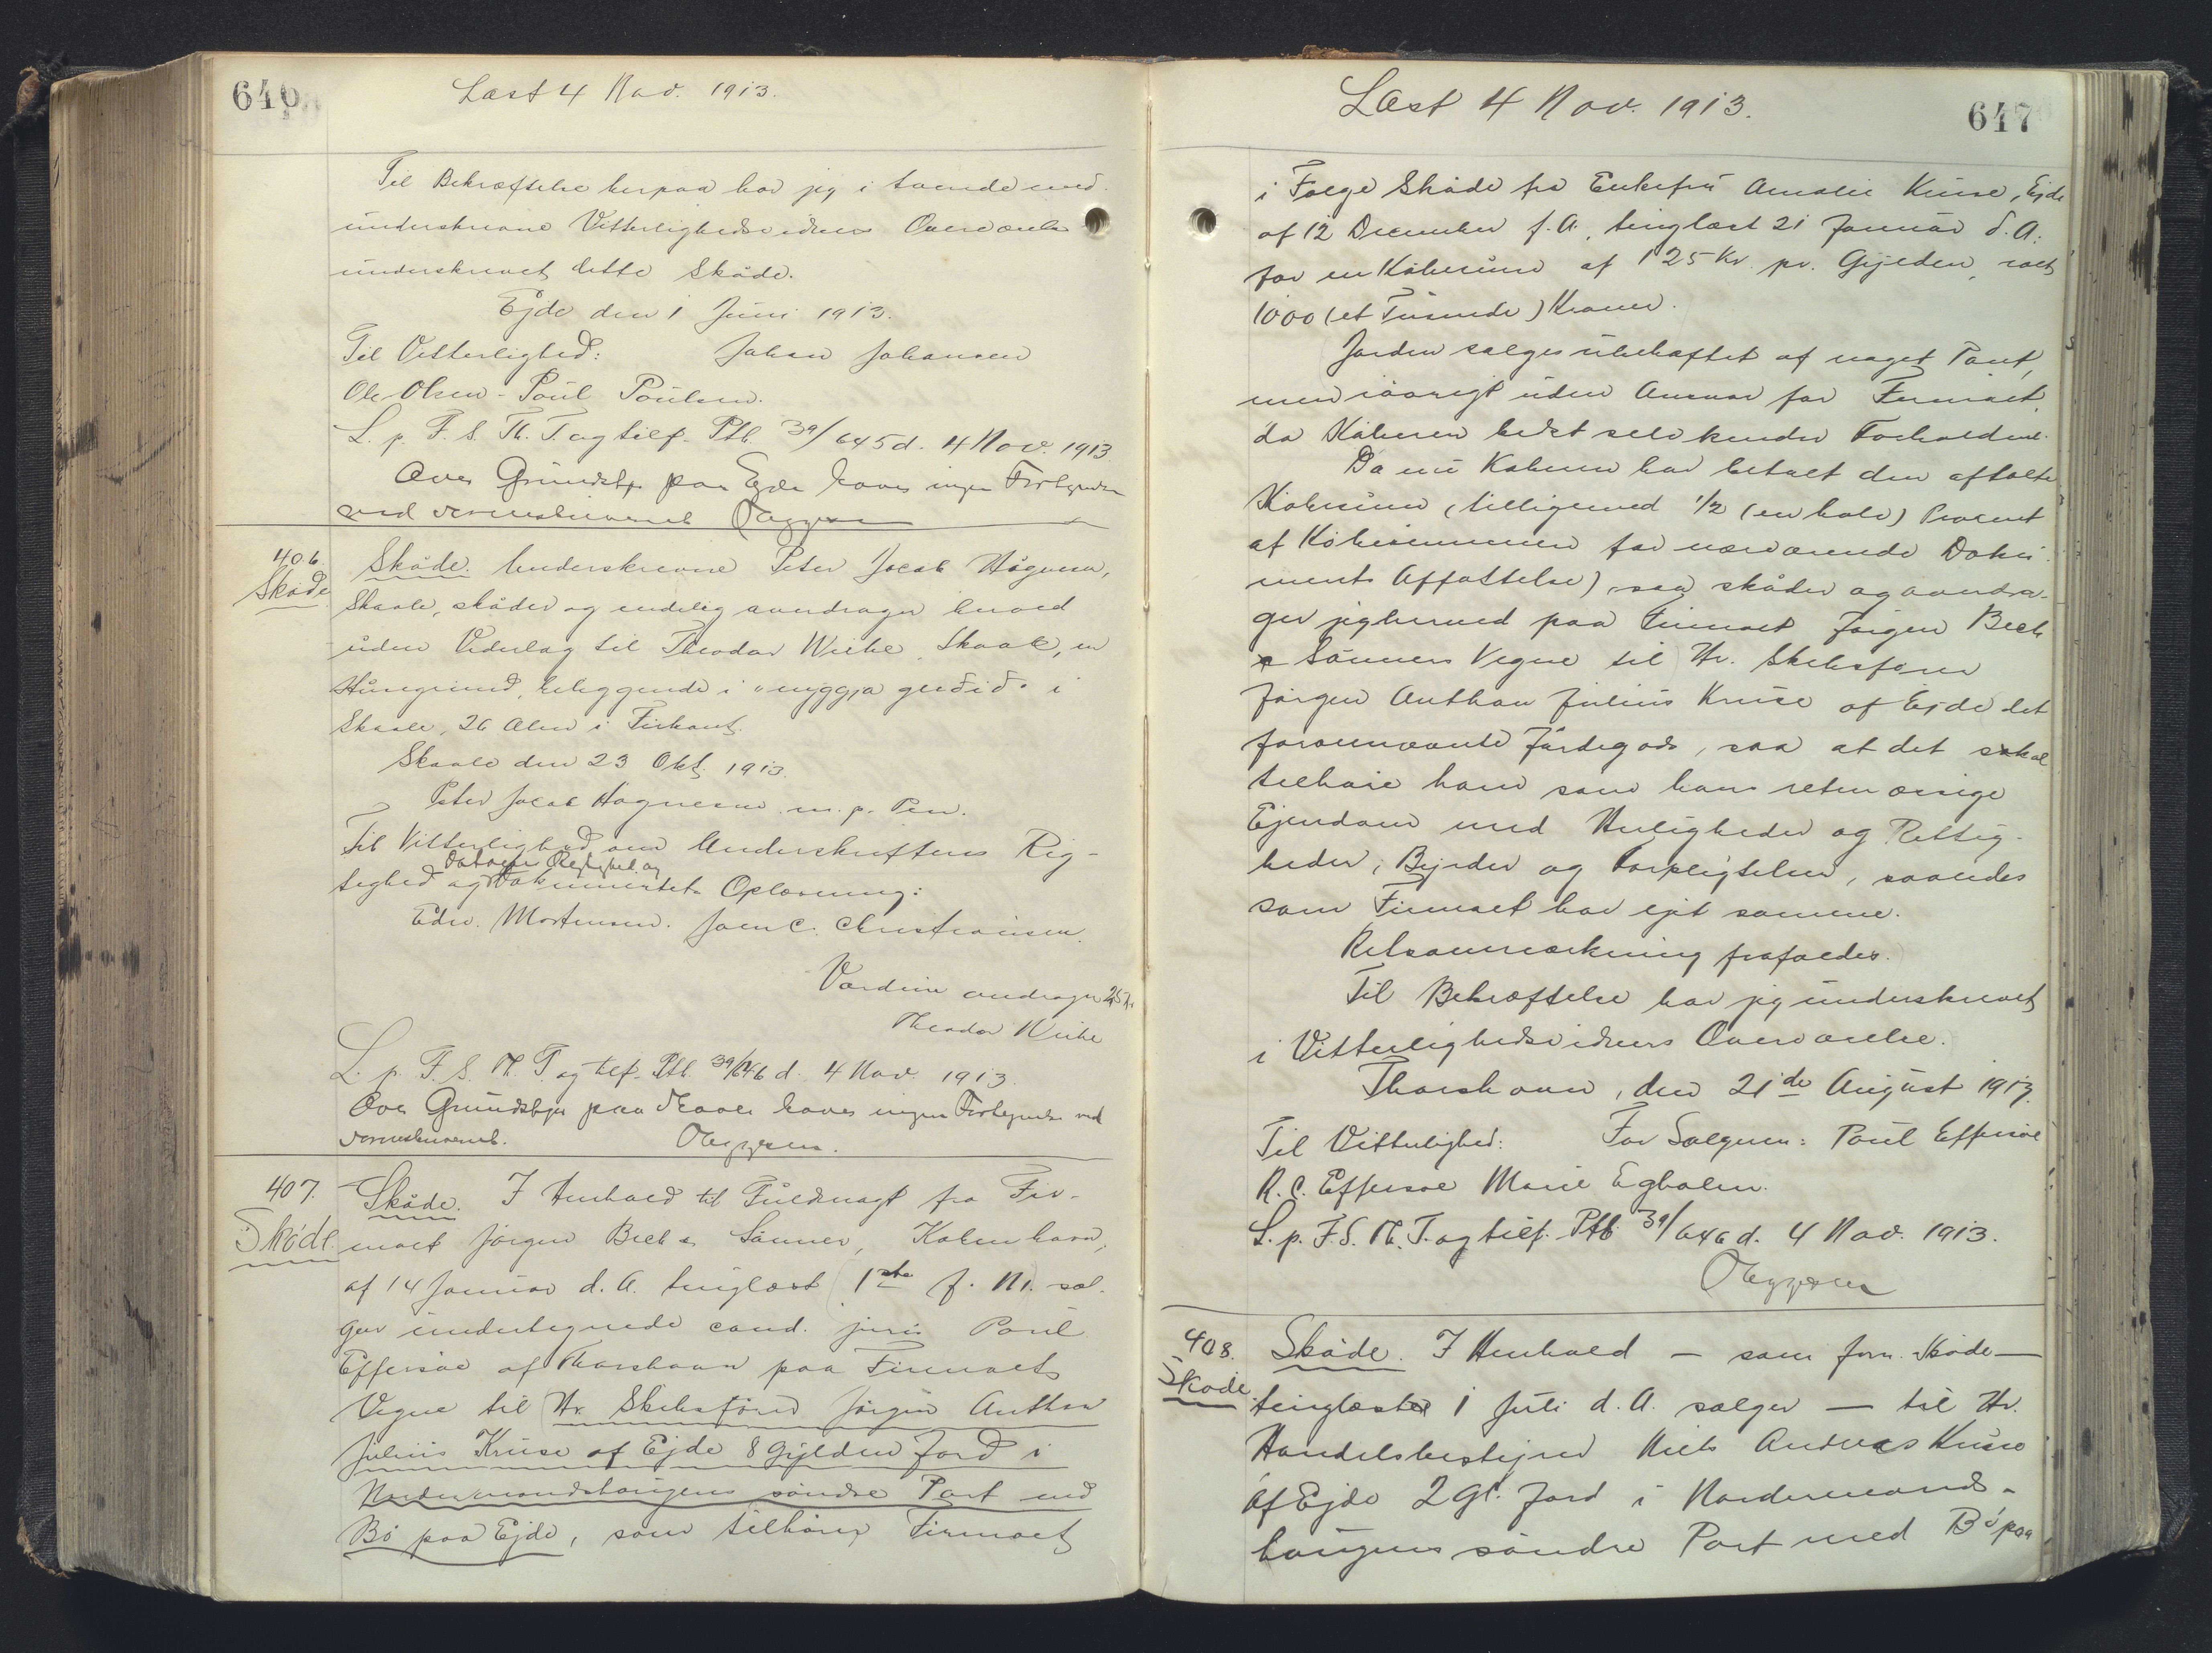 646
Læst 4 Nov. 1913.
Til Bekræftelse herpaa har jeg i tvende med-
underskrevne Vitterlighedsvidners Overværelse
underskrevet dette Skøde.
Ejde den 1 Juni 1913.
Til Vitterlighed: Johan Johansen
Ole Olsen - Poul Poulsen.
L. p. F. S. Th. T. og tilf. Ptb. 39/645 d. 4 Nov. 1913
Over Grundstk. paa Ejde haves ingen Fortegnelse
ved Sorenskriverembedet
406.
Skøde
Skøde. Underskrevne Peter Jacob Høgnesen,
Skaale, skøder og endelig overdrager herved
uden Vederlag til Theodor Wiehe, Skaale, en
Husgrund, beliggende i "nyggja gerðið" i
Skaale, 26 Alen i Firkant.
Skaale den 23 Okt. 1913.
Peter Jacob Høgnesen m. p. Pen.
Til Vitterlighed om Underskriftens Rig-
Datoens Rigtighed og
tighed og Dokumentets Oplæsning:
Edw. Mortensen. Joen C. Christiansen.
Værdien andrager 25 Kr.
Theodor Wiehe
L. p. F. S. Th. T. og tilf. Ptb. 39/646 d. 4 Nov. 1913.
Over Grundstykker paa Skaale haves ingen Fortegnelse ved
Sorenskriveremb.
407.
Skøde.
Skøde. I Henhold til Fuldmagt fra Fir-
maet Jørgen Bech & Sønner, København,
af 14 Januar d. A. tinglæst 1ste f. M. sæl-
ger undertegnede cand. juris Poul
Effersøe af Thorshavn paa Firmaets
Vegne til Hr. Skibsfører Jørgen Anthon
Julius Kruse af Ejde 8 Gylden Jord i
Nordermandshøigens søndre Part med
Bø paa Ejde, som tilhører Firmaet
Læst 4 Nov. 1913.
647
i Følge Skøde fra Enkefru Amalie Kruse, Ejde
af 12 December f. A., tinglæst 21 Januar d. A.
for en Købesum af 125 Kr. pr. Gylden, ialt
1000 (et Tusinde) Kroner.
Jorden sælges ubehæftet af noget Pant,
men iøvrigt uden Ansvar for Firmaet,
da Køberen bedst selv kender Forholdene.
Da nu Køberen har betalt den aftalte
Købesum (tilligemed 1/2 (en halv) Procent
af Købesummen for nærværende Doku-
ments Affattelse), saa skøder og overdra-
ger jeg hermed paa Firmaet Jørgen Bech
& Sønners Vegne til Hr. Skibsfører
Jørgen Anthon Julius Kruse af Ejde det
forommeldte Jordegods, saa at det skal
tilhøre ham som hans retmæssige
Ejendom med Herligheder og Rettig-
heder, Byrder og Forpligtelser, saaledes
som Firmaet har ejet samme.
Retsanmærkning frafaldes.
Til Bekræftelse har jeg underskrevet
i Vitterlighedsvidners Overværelse.
Thorshavn, den 21de August 1913.
Til Vitterlighed: For Sælgeren: Poul Effersøe
R. C. Effersøe Marie Egholm.
L. p. F. S. Th. T. og tilf. Ptb. 39/646 d. 4 Nov. 1913.
408.
Skøde
Skøde. I Henhold — som forr. Skøde —
tinglæst 1 Juli d. A. sælger — til Hr.
Handelsbestyrer Niels Andreas Kruse
af Ejde 2 Gl. Jord i Nordermands-
høigens søndre Part med Bø paa